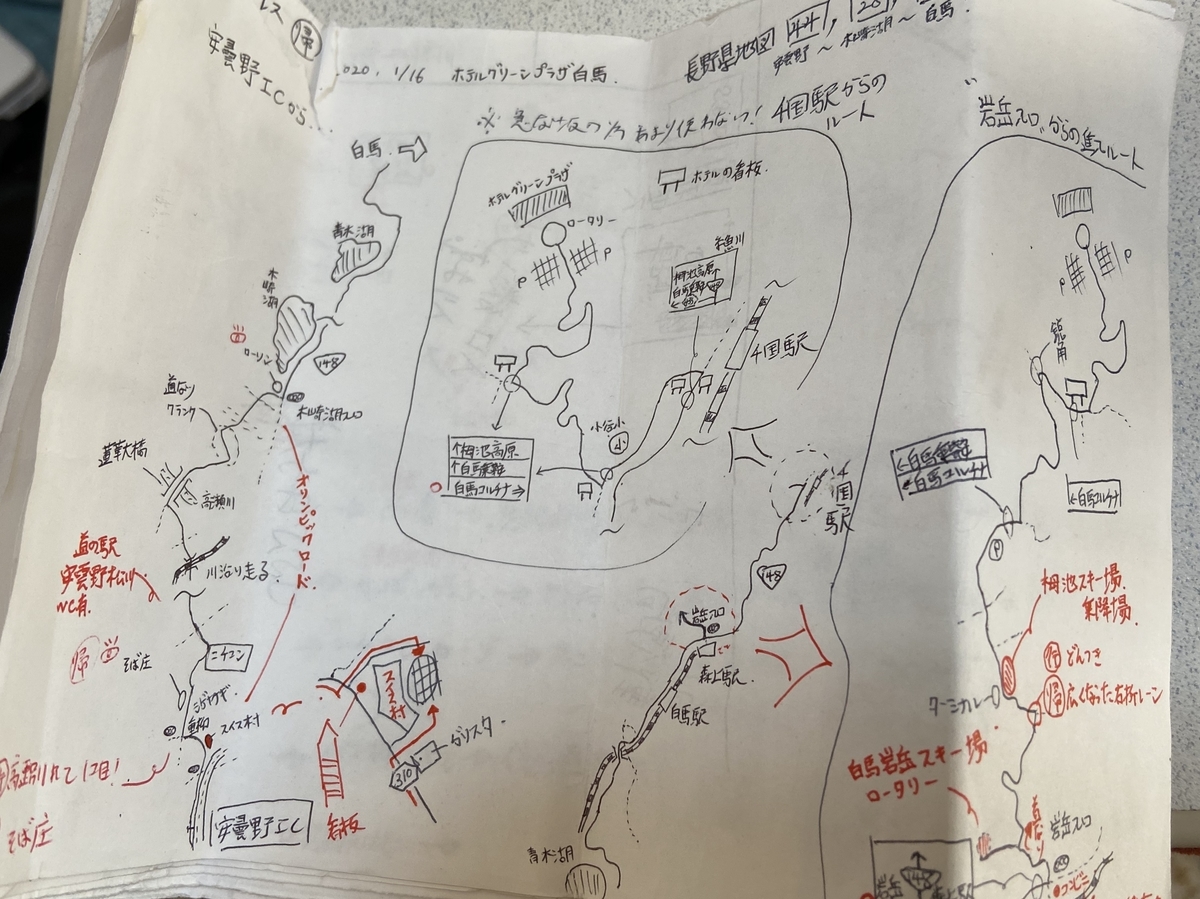 帰
安曇野ICから
2020. 1/16 ホテルグリーンプラザ白馬.
長野県地図 44, 20,
安曇野 〜 木崎湖月 〜 白馬.
あまり使わない! 千国駅からの
ルート
岩岳スロ からの
ルート
白馬
青木湖
木崎湖
ローソン
148
木崎湖スロ
道なり
クランク
蓮華大橋
高瀬川
川沿り走る.
オリンピックロード
道の駅
安曇野松川
帰
そば庄
ニチコン
スイス村
そば庄
安曇野IC
ホテルグリーンプラザ
ロータリー
P
P
ホテルの看板.
糸魚川
栂池高原
千国駅
小谷小
小
↑栂池高原
↑白馬乗鞍
白馬コルチナ→
千国駅
148
岩岳スロ
森上駅
白馬駅
青木湖
スイス村
グリスタ.
310
看板
P
P
鋭角
←白馬乗鞍
←白馬コルチナ
←白馬コルチナ
P
栂池スキー場.
乗降場.
行 どんつき
帰 広くなった右折レーン
白馬岩岳スキー場
ロータリー
岩岳スロ
岩岳
148
コンビニ